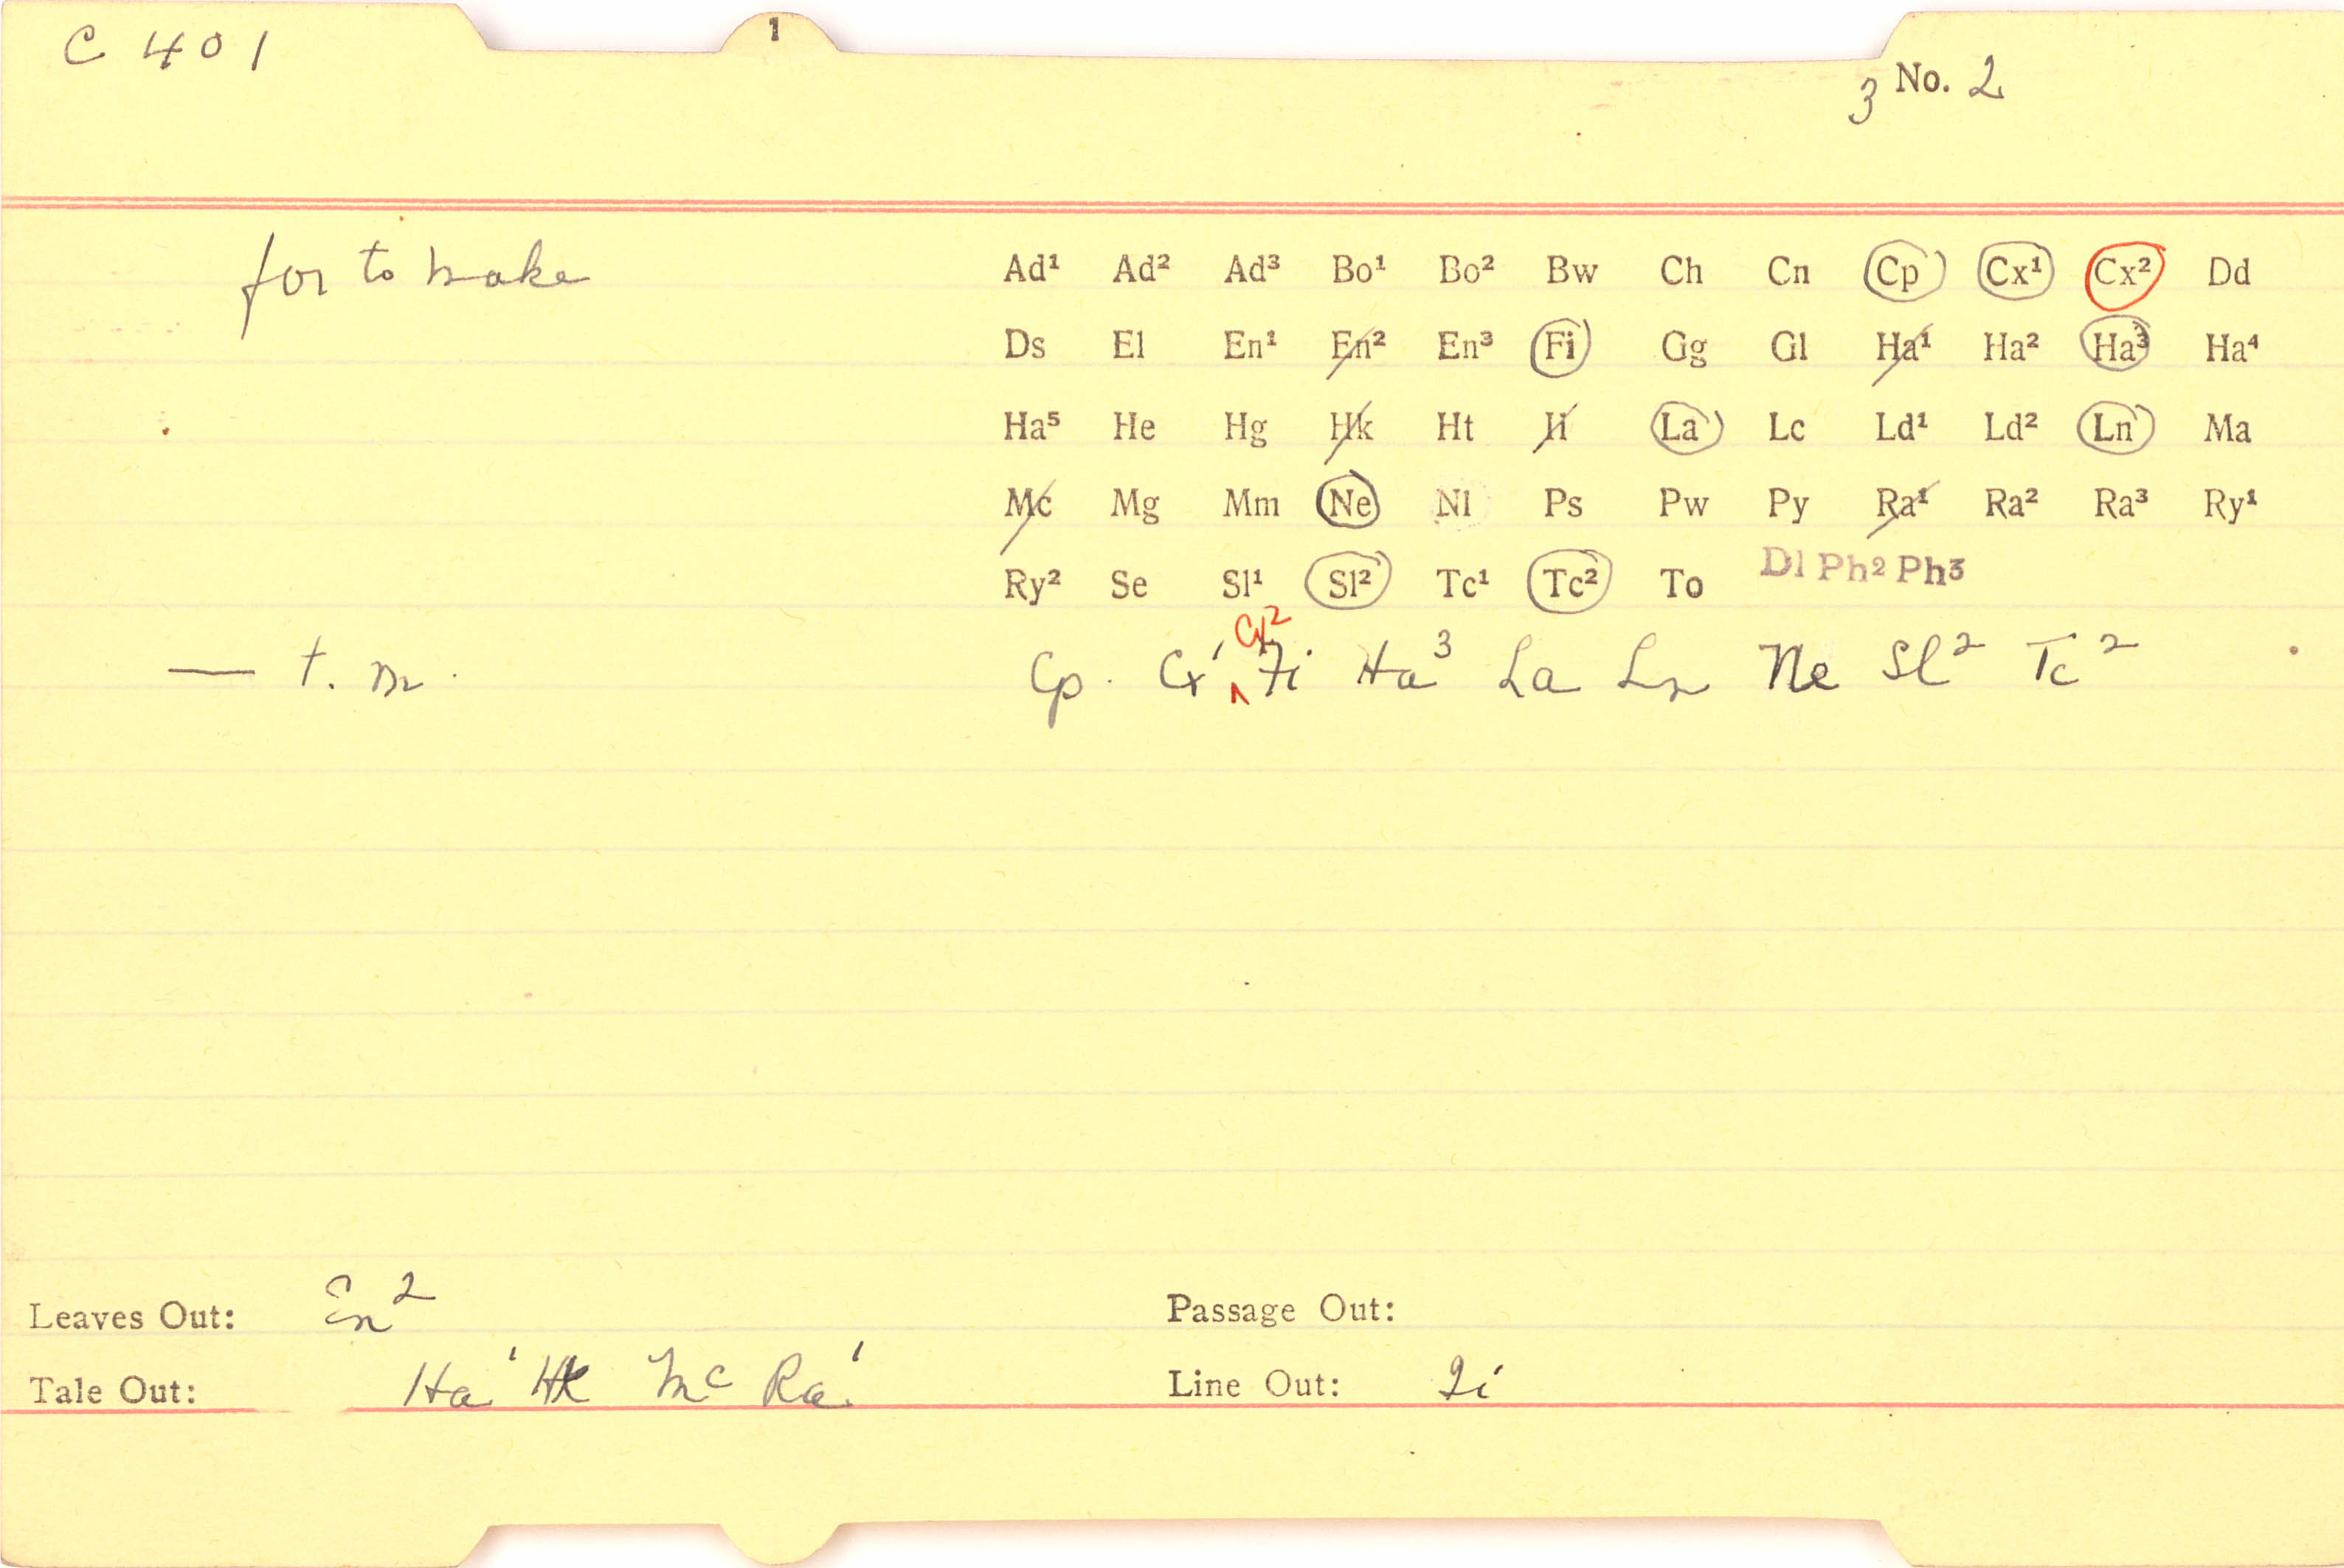 C 401
1
3 No. 2
for to make
Ad¹ Ad² Ad³ Bo¹ Bo² Bw Ch Cn Cp Cx¹ Cx² Dd
Ds El En¹ En² En³ Fi Gg Gl Ha¹ Ha² Ha³ Ha⁴
Ha⁵ He Hg Hk Ht Ii La Lc Ld¹ Ld² Ln Ma
Mc Mg Mm Ne Nl Ps Pw Py Ra¹ Ra² Ra³ Ry¹
Ry² Se Sl¹ Sl² Tc¹ Tc² To Dl Ph² Ph³
Cx²
— t. m. Cp. Cx¹ ^ Fi Ha³ La Ln Ne Sl² Tc²
Leaves Out: En² Passage Out:
Tale Out: Ha¹ Hk Mc Ra¹ Line Out: Ii